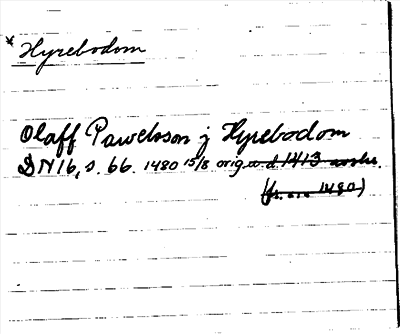 * Hyrebodom
Olaff Pawelsson j Hyrebodom
DN 16, s. 66. 1480 15/8 orig.
1480)